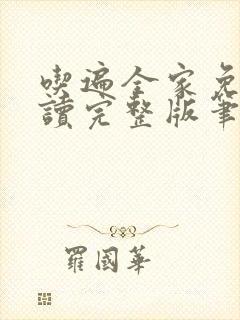 喫遍全家免
讀完整版筆
羅國華